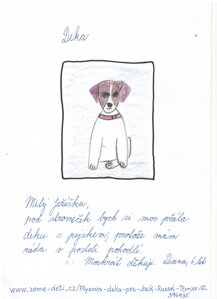 Deka
Milý Ježíšku,
pod stromeček bych si moc přála
deku s pejskem, protože mám
ráda v posteli pohodlí.
Mockrát děkuji. Diana, 6 let
www.zeme-deti.cz/Plysova-deka-pro-Jack-Russel-Terier-CZ